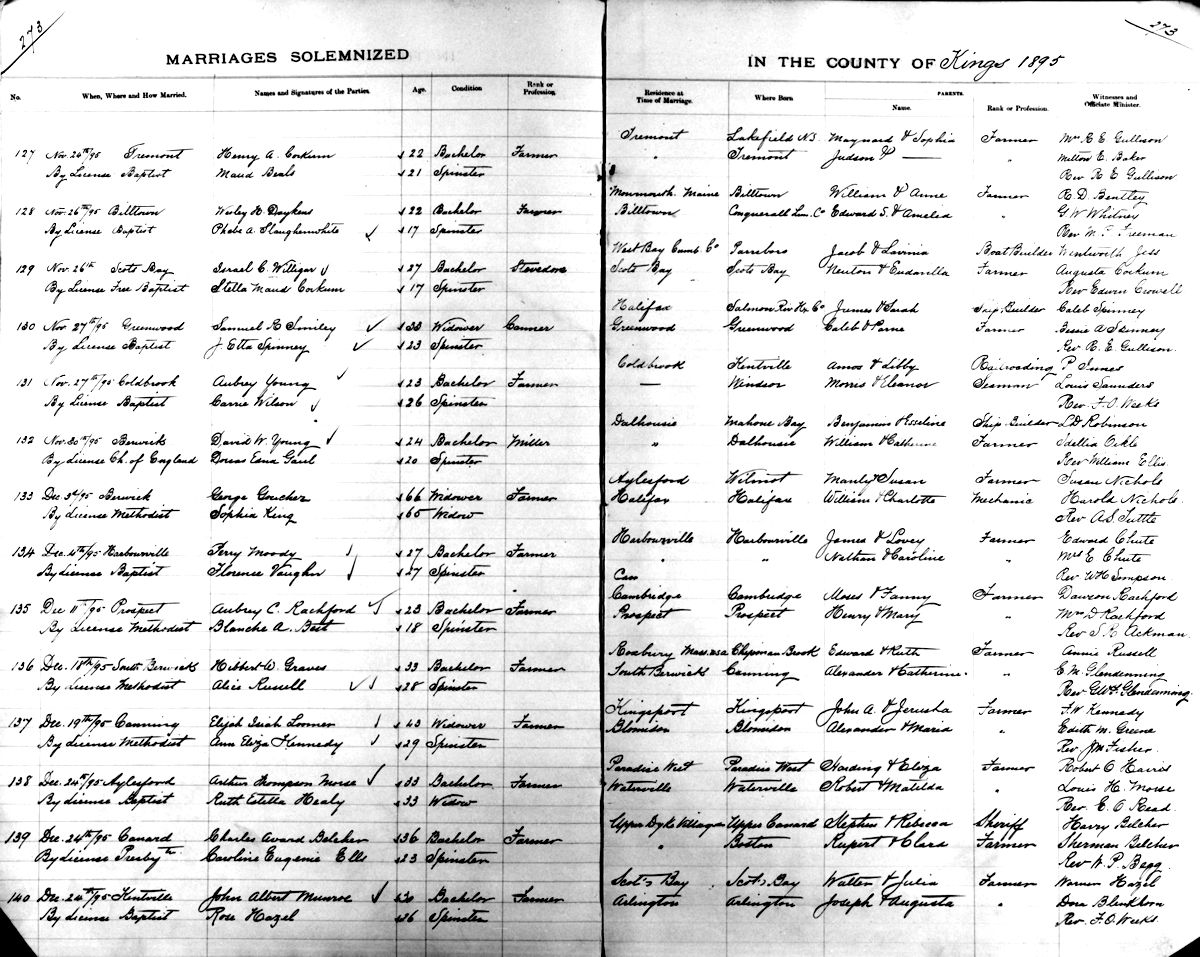 273
273
MARRIAGES SOLEMNIZED
IN THE COUNTY OF Kings 1895
No. When, Where and How Married. Names and Signatures of the Parties. Age. Condition Rank or Profession.
Residence at Time of Marriage. Where Born PARENTS. Name. Rank or Profession. Witnesses and Officiate Minister.
127 Nov. 26th/95 Tremont Henry A. Corkum 22 Bachelor Farmer
By License Baptist Maud Beals 21 Spinster
128 Nov. 26th/95 Billtown Wesley H. 22 Bachelor Farmer
By License Baptist Phebe A. Slaughenwhite 17 Spinster
129 Nov. 26th Scots Bay Israel C. Willigar 27 Bachelor Stevedore
By License Free Baptist Stella Maud Corkum 17 Spinster
130 Nov 27th/95 Greenwood Samuel R Smiley 33 Widower Canner
By License Baptist J. Etta Spinney 23 Spinster
131 Nov. 27th/95 Coldbrook Aubrey Young 23 Bachelor Farmer
By License Baptist Carrie Wilson 26 Spinster
132 Nov. 30th/95 Berwick David W. Young 24 Bachelor Miller
By License Ch. of England Dorcas Edna Gaul 20 Spinster
133 Dec 3d/95 Berwick George Goucher 66 Widower Farmer
By License Methodist Sophia King 65 Widow
134 Dec. 4th/95 Harbourville Perry Moody 27 Bachelor Farmer
By License Baptist Florence Vaughn 27 Spinster
135 Dec 11th/95 Prospect Aubrey C. Rachford 23 Bachelor Farmer
By License Methodist Blanche A. Best 18 Spinster
136 Dec. 18th/95 South Berwick Hibbert W. Graves 33 Bachelor Farmer
By License Methodist Alice Russell 28 Spinster
137 Dec. 19th/95 Canning Elijah Loomer 43 Widower Farmer
By License Methodist Ann Eliza Kennedy 29 Spinster
138 Dec. 24th/95 Aylesford Arthur Thompson Morse 33 Bachelor Farmer
By License Baptist Ruth Estella Healy 33 Widow
139 Dec. 24th/95 Canard Charles Award Belcher 36 Bachelor Farmer
By License Presbytn Caroline Eugenie Ells 23 Spinster
140 Dec. 24th/95 Kentville John Albert Munroe 30 Bachelor Farmer
By License Baptist Rose Hazel 36 Spinster
Tremont Lakefield N.S Maynard & Sophia Farmer Mrs R E Gullison
" Tremont Judson P — " Milton E. Baker
Rev R E Gullison
Monmouth Maine Billtown William & Anne Farmer R. D. Bentley
Billtown Conquerall Lun. Co Edward S. & Amelia " G W Whitney
Rev M. P. Freeman
West Bay Cumb Co Parrsboro Jacob & Lavinia Boat Builder Wentworth Jess
Scots Bay Scots Bay Newton & Farmer Augusta Corkum
Rev Edwin Crowell
Halifax Salmon Riv Hx. Co James & Sarah Ship Builder Caleb Spinney
Greenwood Greenwood Caleb & Farmer Bessie A Spinney
Rev R. E. Gullison
Coldbrook Kentville Amos & Libby Railroading P Innes
— Windsor Morris & Eleanor Seaman Louis Saunders
Rev. F. O. Weeks
Dalhousie Mahone Bay Benjamin & Ship Builder L D Robinson
" Dalhousie William & Catherine Farmer Idellia Oikle
Rev William Ellis
Aylesford Wilmot Manly & Susan Farmer Susan Nichols
Halifax Halifax William & Charlotte Mechanic Harold Nichols
Rev A. S. Tuttle
Harbourville Harbourville James & Lovey Farmer Edward Chute
" " Nathan & Caroline " Mrs E Chute
Cam Rev W H Simpson
Cambridge Cambridge Moses & Fanny Farmer Dawson Rachford
Prospect Prospect Henry & Mary Mrs D Rachford
Rev S. R. Ackman
Roxbury Mass. U.S.A Chipman Brook Edward & Ruth Farmer Annie Russell
South Berwick Canning Alexander & Catherine " E M Glendenning
Rev G W Glendenning
Kingsport Kingsport John A. & Jerusha Farmer F. W Kennedy
Blomidon Blomidon Alexander & Maria " Edith M. Greene
Rev. J M Fisher
Paradise West Paradise West Harding & Eliza Farmer Robert O Harris
Waterville Waterville Robert & Matilda " Louis H. Morse
Rev. E. O Read
Upper Dyke Village Upper Canard Stephen & Rebecca Sheriff Harry Belcher
" Boston Rupert & Clara Farmer Sherman Belcher
Rev W. P. Begg
Scot's Bay Scot's Bay Walter & Julia Farmer Warren Hazel
Arlington Arlington Joseph & Augusta " Dora Blenkhorn
Rev. F. O. Weeks